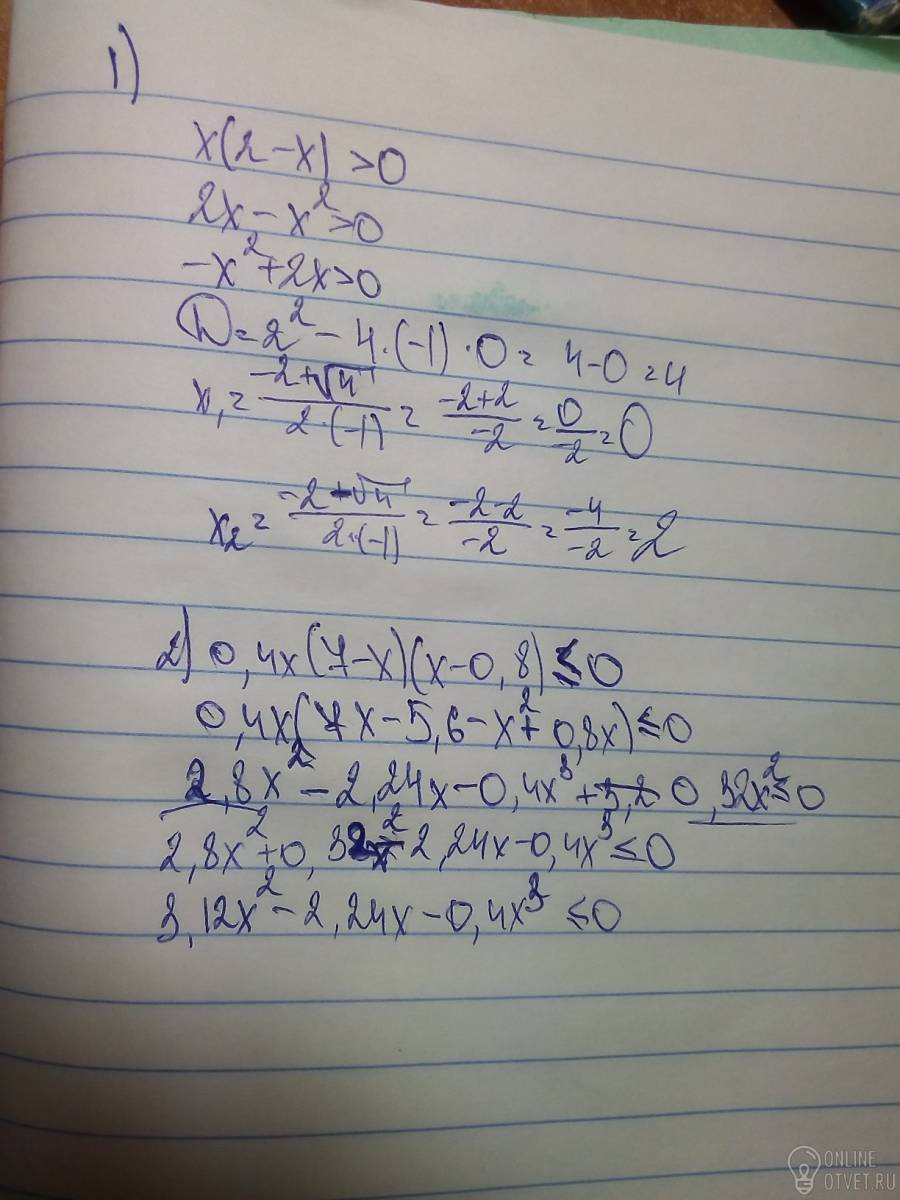 1)
x(2-x)>0
2x-x²>0
-x²+2x>0
D=2²-4·(-1)·0=4-0=4
x₁=(-2+√4)/(2·(-1))=(-2+2)/(-2)=0/(-2)=0
x₂=(-2-√4)/(2·(-1))=(-2-2)/(-2)=(-4)/(-2)=2
2) 0,4x(7-x)(x-0,8)≤0
0,4x(7x-5,6-x²+0,8x)≤0
2,8x²-2,24x-0,4x³+0,32x²≤0
2,8x²+0,32x²-2,24x-0,4x³≤0
3,12x²-2,24x-0,4x³≤0
ONLINE
OTVET.RU